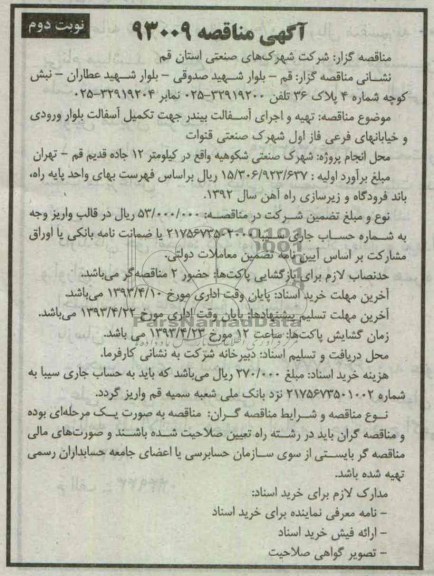 نوبت دوم
آگهی مناقصه ۹۳۰۰۹
مناقصه گزار: شرکت شهرک‌های صنعتی استان قم
نشانی مناقصه گزار: قم - بلوار شهید صدوقی - بلوار شهید عطاران - نبش
کوچه شماره ۴ پلاک ۳۶ تلفن ۳۲۹۱۹۲۰۰-۰۲۵ نمابر ۳۲۹۱۹۲۰۴-۰۲۵
موضوع مناقصه: تهیه و اجرای آسفالت بیندر جهت تکمیل آسفالت بلوار ورودی
و خیابانهای فرعی فاز اول شهرک صنعتی قنوات
محل انجام پروژه: شهرک صنعتی شکوهیه واقع در کیلومتر ۱۲ جاده قدیم قم - تهران
مبلغ برآورد اولیه: ۱۵/۳۰۶/۹۲۳/۶۳۷ ریال براساس فهرست بهای واحد پایه راه،
باند فرودگاه و زیرسازی راه آهن سال ۱۳۹۲.
نوع و مبلغ تضمین شرکت در مناقصه: ۵۳/۰۰۰/۰۰۰ ریال در قالب واریز وجه
به شماره حساب جاری سیبا یا ضمانت نامه بانکی یا اوراق
مشارکت بر اساس آیین نامه تضمین معاملات دولتی.
حدنصاب لازم برای بازگشایی پاکت‌ها: حضور ۲ مناقصه‌گر می‌باشد.
آخرین مهلت خرید اسناد: پایان وقت اداری مورخ ۱۳۹۳/۴/۱۰ می‌باشد.
آخرین مهلت تسلیم پیشنهادها: پایان وقت اداری مورخ ۱۳۹۳/۴/۲۲ می‌باشد.
زمان گشایش پاکت‌ها: ساعت ۱۲ مورخ ۱۳۹۳/۴/۲۳ می باشد.
محل دریافت و تسلیم اسناد: دبیرخانه شرکت به نشانی کارفرما.
هزینه خرید اسناد: مبلغ ۲۷۰/۰۰۰ ریال می‌باشد که باید به حساب جاری سیبا به
شماره ۲۱۷۵۶۷۳۵۰۱۰۰۲ نزد بانک ملی شعبه سمیه قم واریز گردد.
نوع مناقصه و شرایط مناقصه گران: مناقصه به صورت یک مرحله‌ای بوده
و مناقصه گران باید در رشته راه تعیین صلاحیت شده باشند و صورت‌های مالی
مناقصه گر بایستی از سوی سازمان حسابرسی یا اعضای جامعه حسابداران رسمی
تهیه شده باشد.
مدارک لازم برای خرید اسناد:
- نامه معرفی نماینده برای خرید اسناد
- ارائه فیش خرید اسناد
- تصویر گواهی صلاحیت